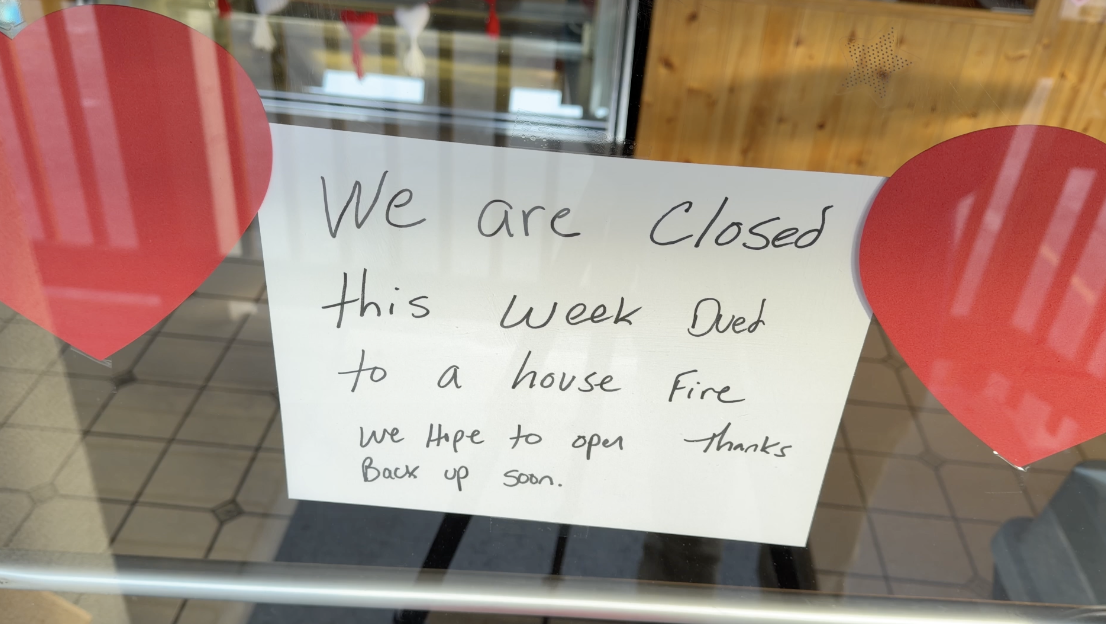 We are Closed
this Week Dued
to a house Fire
We Hope to open thanks
Back up soon.